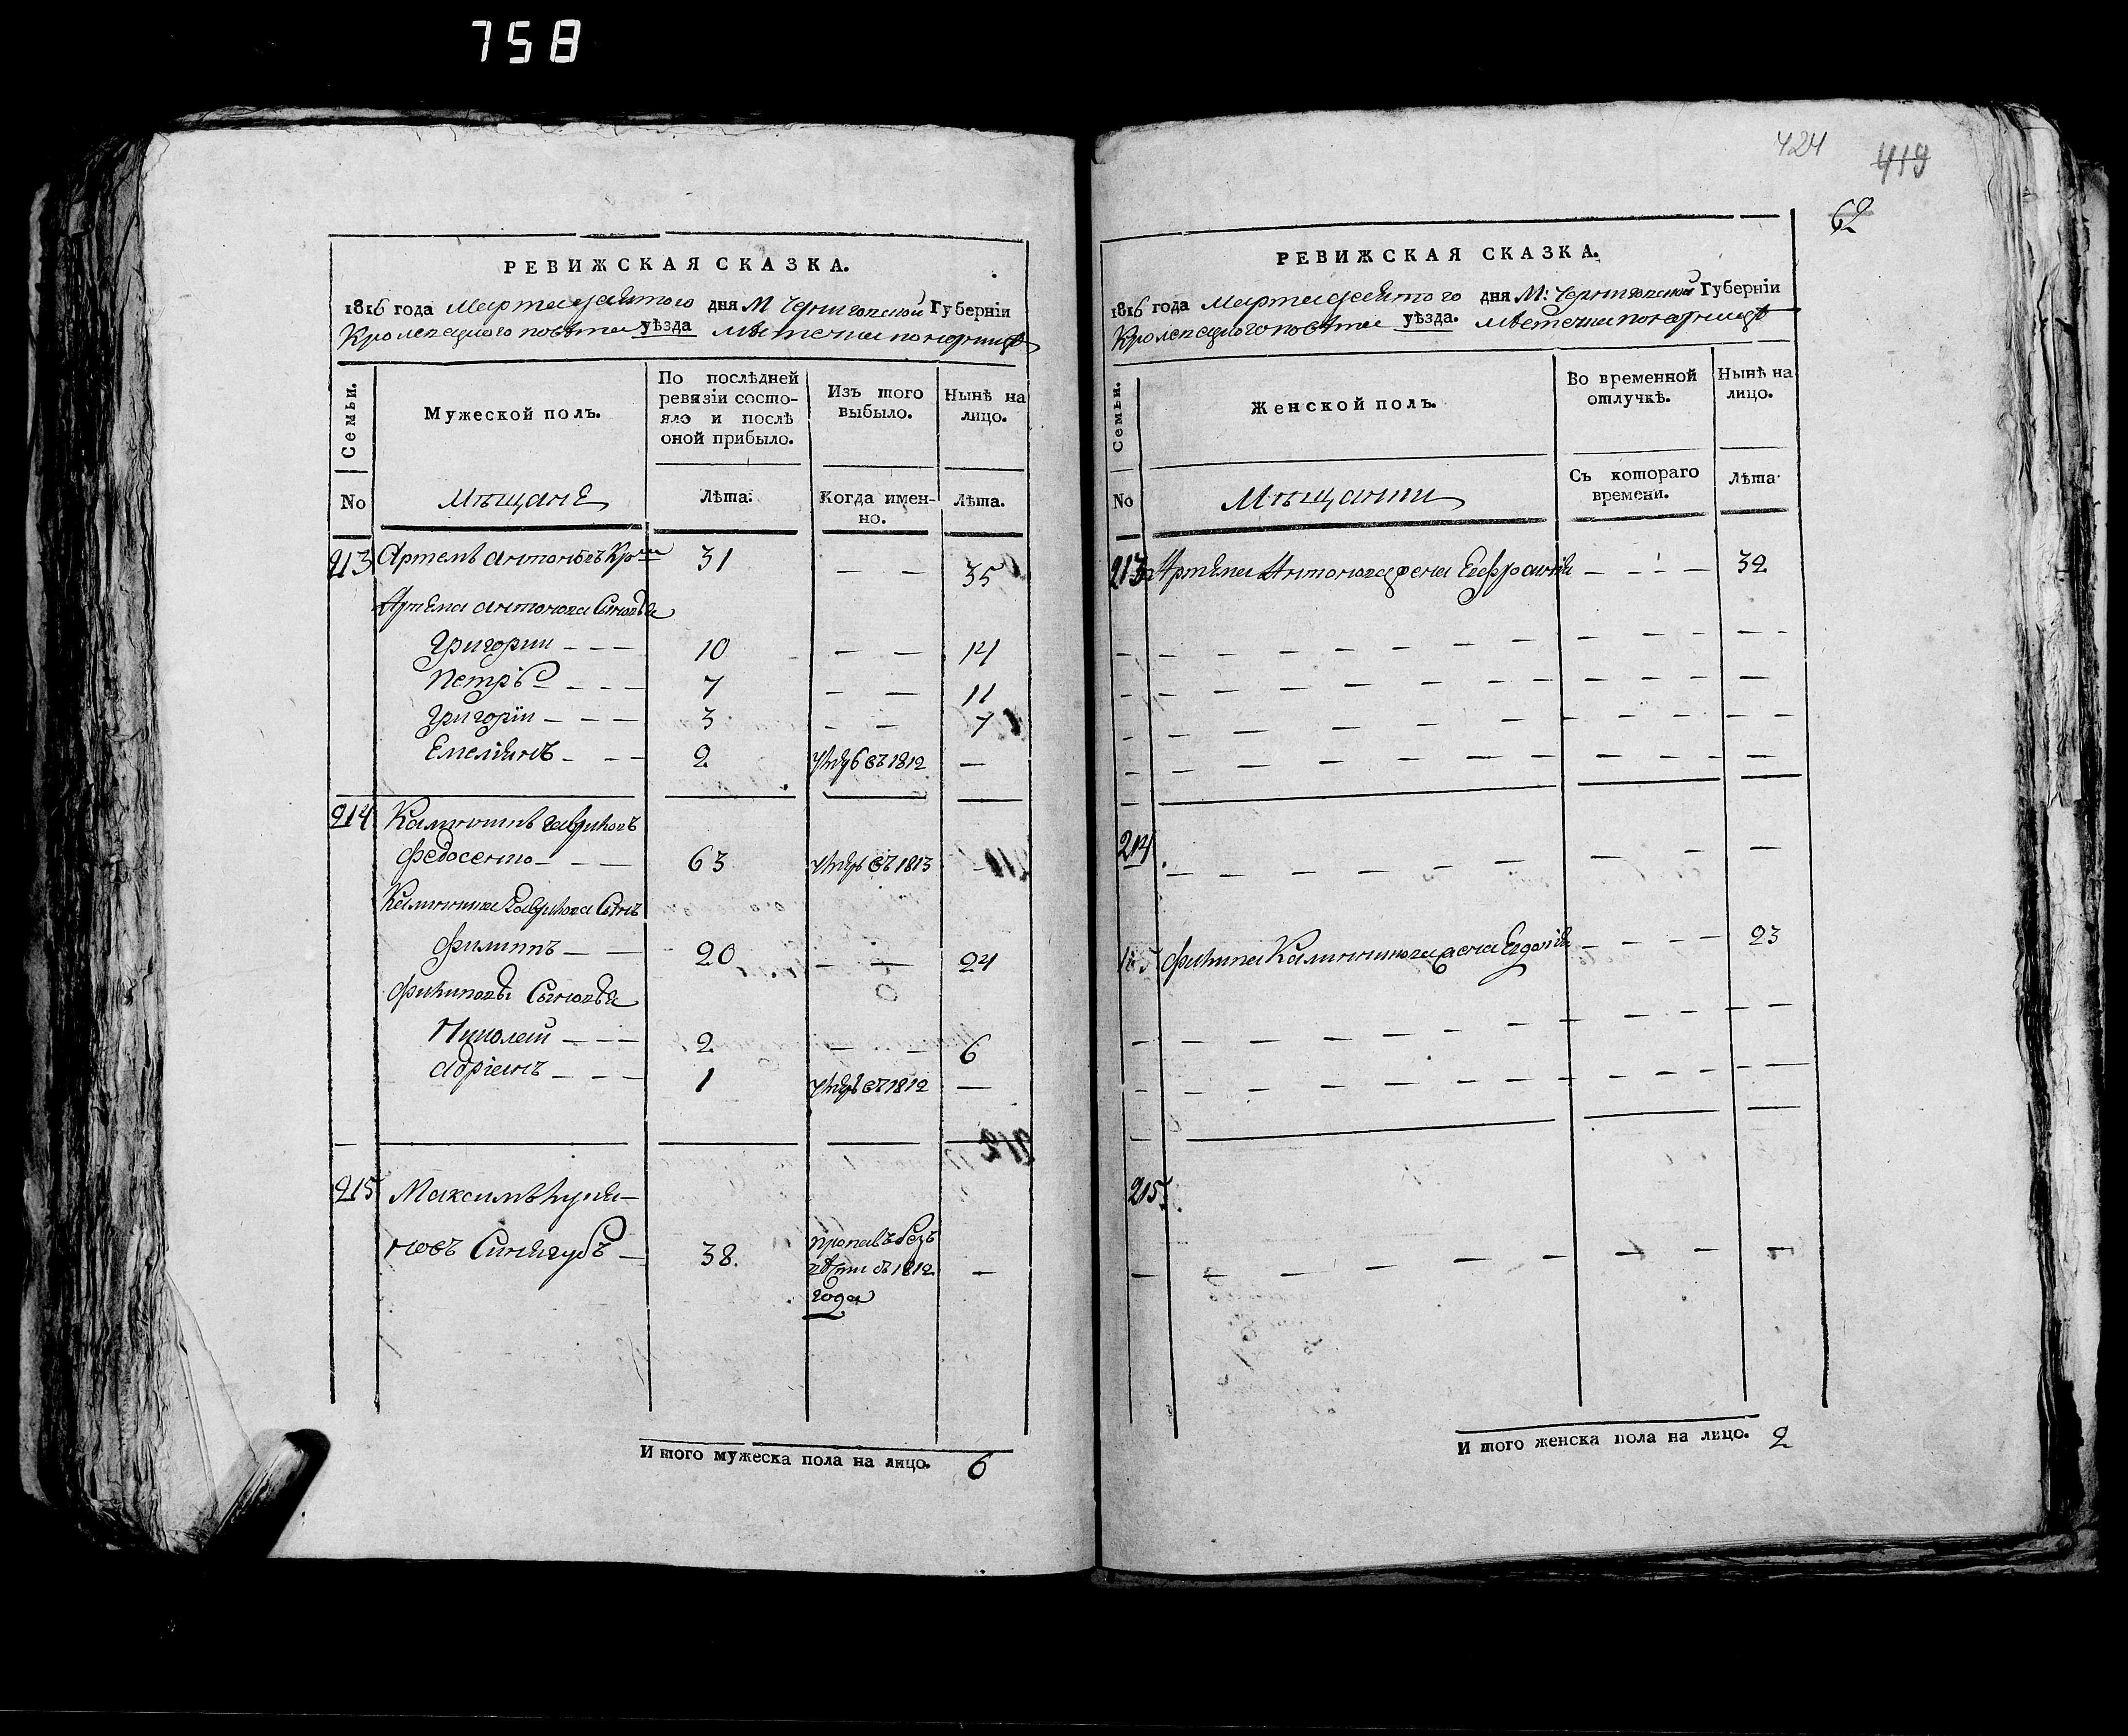 758
424
419
62
РЕВИЖСКАЯ СКАЗКА.
1816 года Марта десятого дня М Черниговской Губерніи
Кролевецкого повѣта уѣзда мѣстечка понорницѣ
Семьи.
Мужеской полъ.
По послѣдней ревизіи состояло и послѣ оной прибыло.
Изъ того выбыло.
Нынѣ на лицо.
No
Мѣщане
Лѣта.
Когда именно.
Лѣта.
213 Артемъ антоновъ 31 — — 35
Артема антонова Сыновья
Григории — — — 10 — — 14
Петръ — — — 7 — — 11
Григоріи — — — 3 — — 7
Емелианъ — — — 2 въ 1812 —
214 Калинникъ гавриловъ
Федосенко — — — 63 въ 1813
Калинника Гаврилова Сынъ
Филиппъ — — 20 — — 24
Филиповы Сыновья
Николай — — — 2 — — 6
адріанъ — — — 1 въ 1812 —
215 Максимъ Лукья—
новъ Синягубъ — 38. пропавъ безъ
вѣсти въ 1812 —
года
И того мужеска пола на лицо. 6
РЕВИЖСКАЯ СКАЗКА.
1816 года Марта десятого дня М: Черниговской Губерніи
Кролевецкого повѣта уѣзда. мѣстечка понорницѣ
Семьи.
Женской полъ.
Во временной отлучкѣ.
Нынѣ на лицо.
No
Мѣщанки
Съ котораго времени.
Лѣта.
213 Артема Антонова жена Евфросинія — — — 32
214
Филипа Калинникова жена Евдокія — — — — 23
215
И того женска пола на лицо. 2